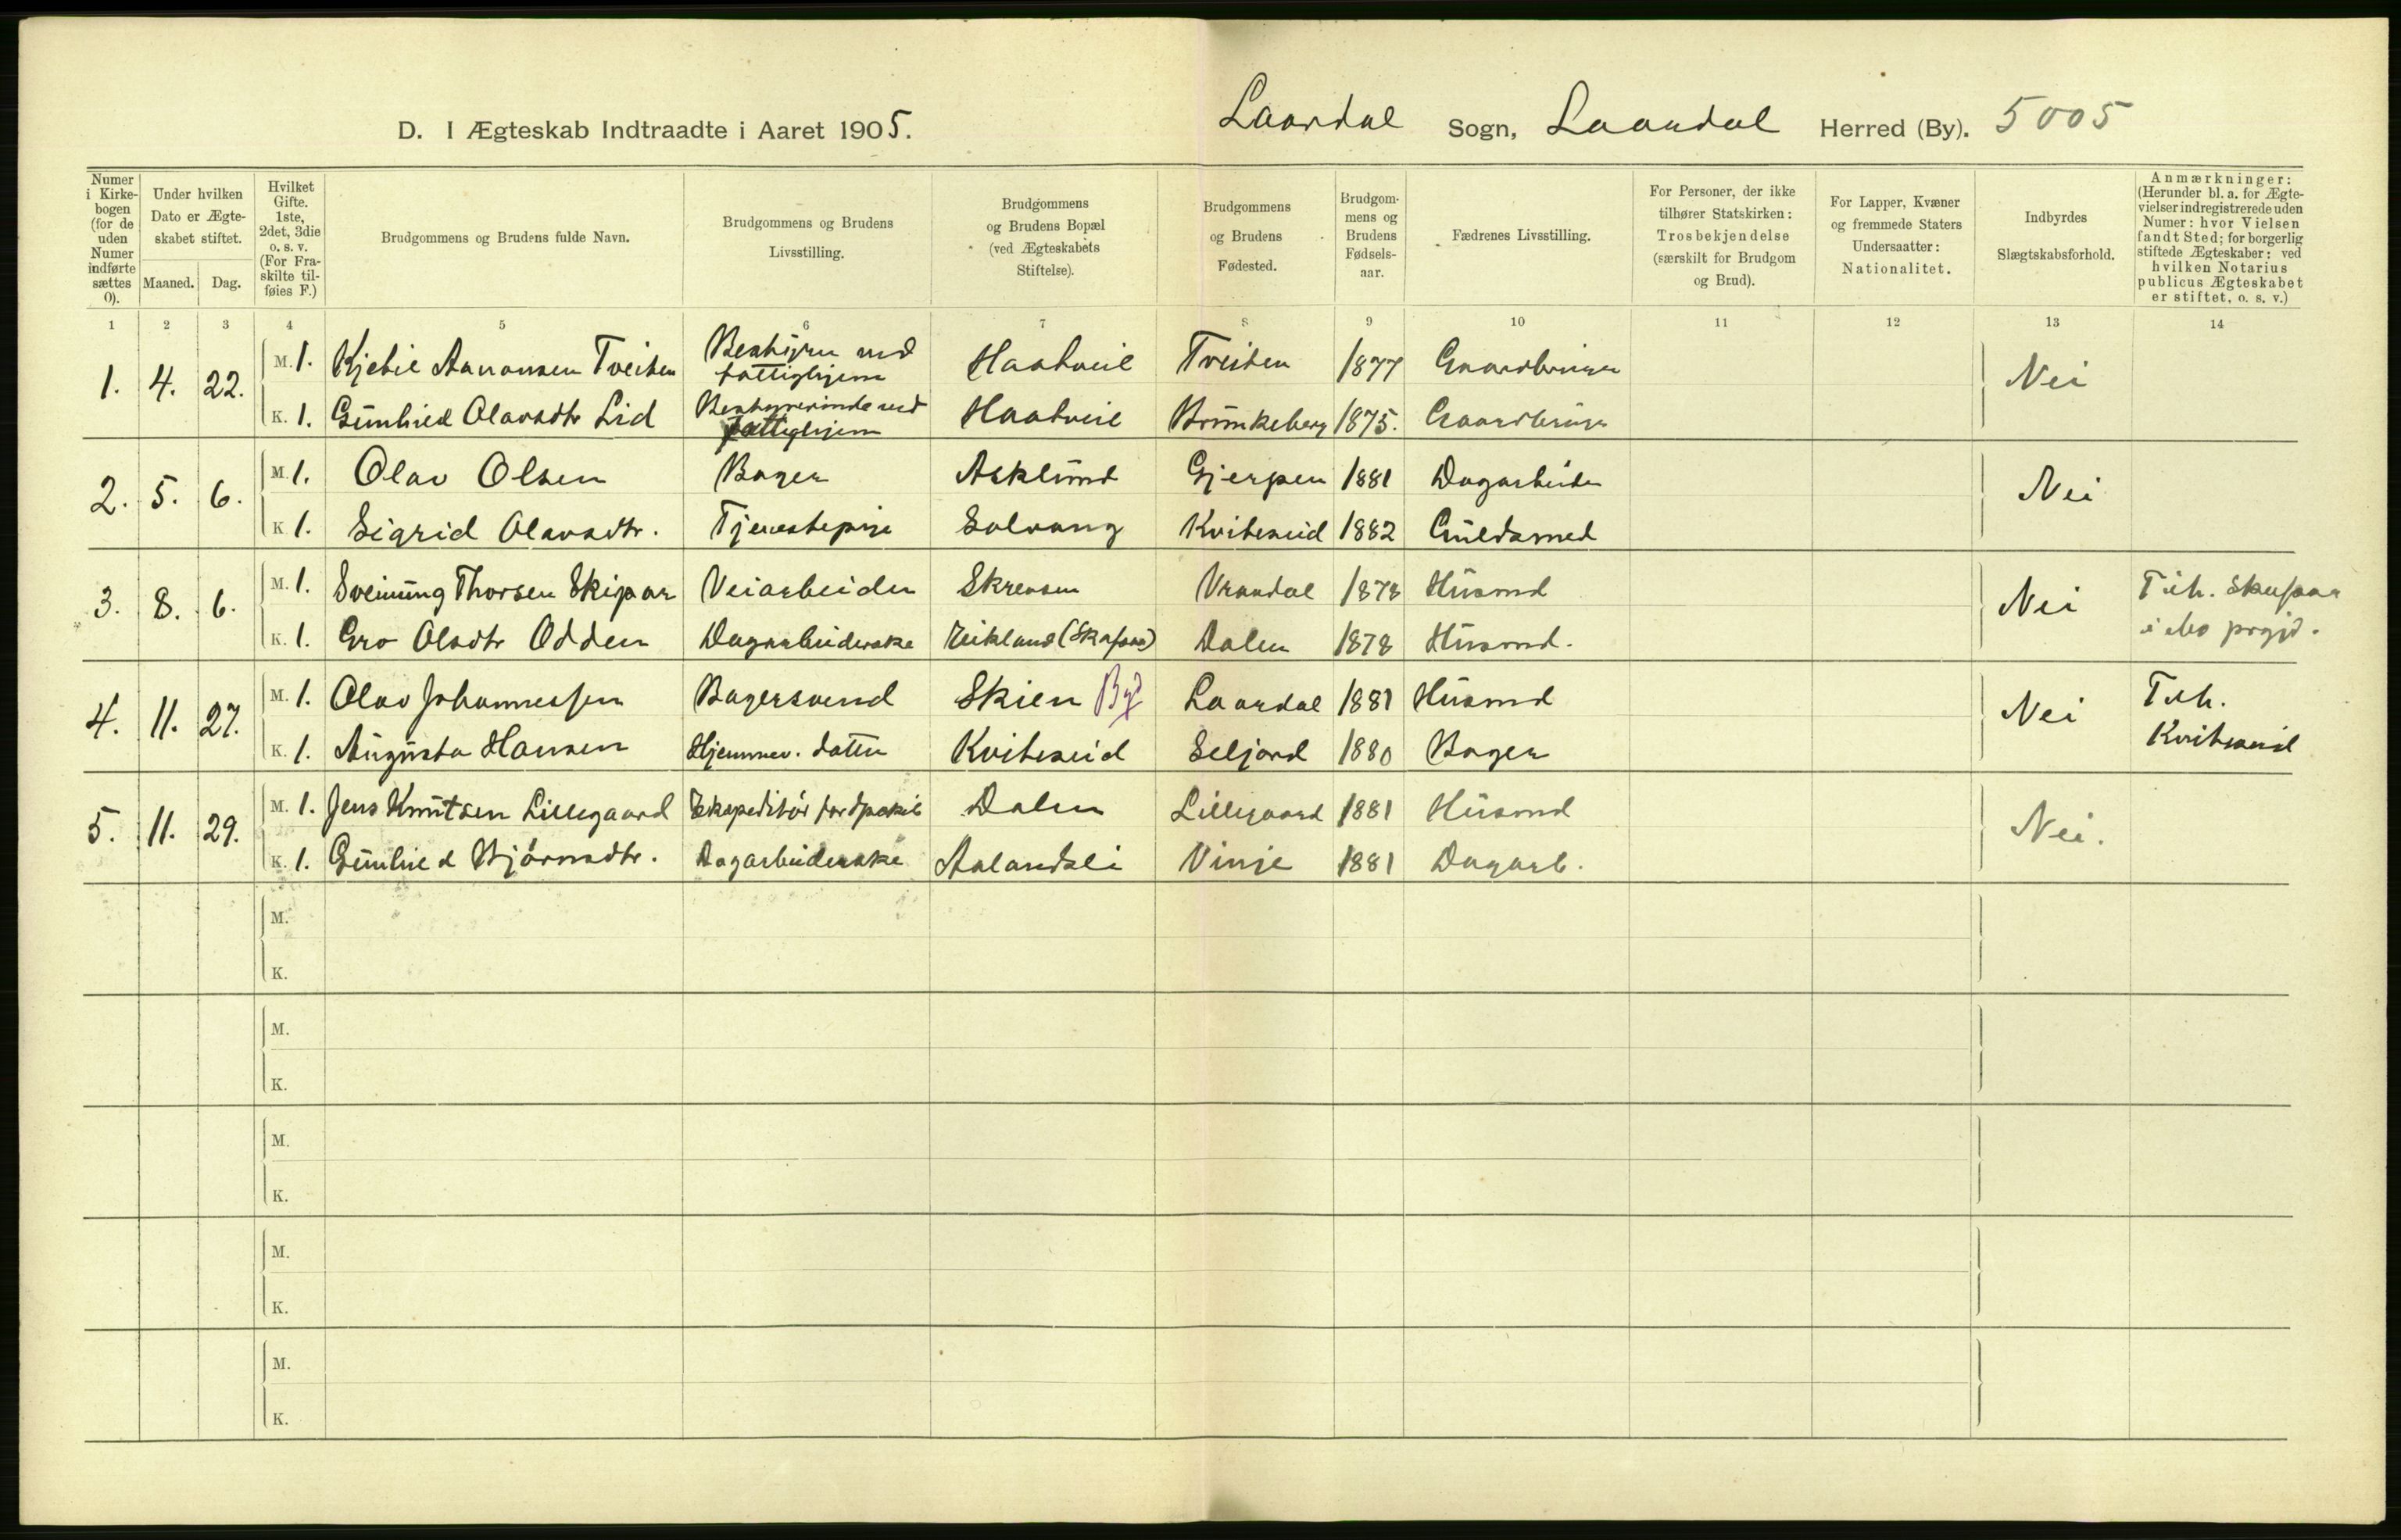 D. I Ægteskab Indtraadte i Aaret 1905.
Laardal Sogn, Laardal Herred (By). 5005
Numer i Kirke-bogen (for de uden Numer indførte sættes 0).
Under hvilken Dato er Ægte-skabet stiftet.
Maaned. Dag.
Hvilket Gifte. 1ste, 2det, 3die o. s. v. (For Fra-skilte til-føies F.)
Brudgommens og Brudens fulde Navn.
Brudgommens og Brudens Livsstilling.
Brudgommens og Brudens Bopæl (ved Ægteskabets Stiftelse).
Brudgommens og Brudens Fødested.
Brudgom-mens og Brudens Fødsels-aar.
Fædrenes Livsstilling.
For Personer, der ikke tilhører Statskirken: Trosbekjendelse (særskilt for Brudgom og Brud).
For Lapper, Kvæner og fremmede Staters Undersaatter: Nationalitet.
Indbyrdes Slægtskabsforhold.
Anmærkninger: (Herunder bl. a. for Ægte-vielser indregistrerede uden Numer: hvor Vielsen fandt Sted; for borgerlig stiftede Ægteskaber: ved hvilken Notarius publicus Ægteskabet er stiftet, o. s. v.)
1 2 3 4 5 6 7 8 9 10 11 12 13 14
1. 4. 22. M. 1. Kjetil Aanonsen Tveiten Bestyrer ved fattighjem Haatveit Tveiten 1877 Gaardbruger Nei
K. 1. Gunhild Olavsdtr Lid Bestyrerinde ved fattighjem Haatveit Brunkeberg 1875. Gaardbruger
2. 5. 6. M. 1. Olav Olsen Bager Asklund Gjerpen 1881 Dagarbeider Nei
K. 1. Sigrid Olavsdtr. Tjenestepige Solvang Kviteseid 1882 Guldsmed
3. 8. 6. M. 1. Sveinung Thorsen Skipar Veiarbeider Vraadal 1878 Husmd Nei Tilh. Skafsaa i Mo prgjd.
K. 1. Gro Olsdtr Odden Dagarbeiderske Eikland (Skafsaa) Dalen 1878 Husmd.
4. 11. 27. M. 1. Olav Johannessen Bagersvend Skien By Laardal 1881 Husmd Nei Tilh. Kviteseid
K. 1. Augusta Hansen Hjemmev. datter Kviteseid Seljord 1880 Bager
5. 11. 29. M. 1. Jens Knutsen Lillegaard Ekspeditør Dalen Lillegaard 1881 Husmd Nei.
K. 1. Gunhild Bjørnsdtr. Dagarbeiderske Aalandsli Vinje 1881 Dagarb.
M.
K.
M.
K.
M.
K.
M.
K.
M.
K.